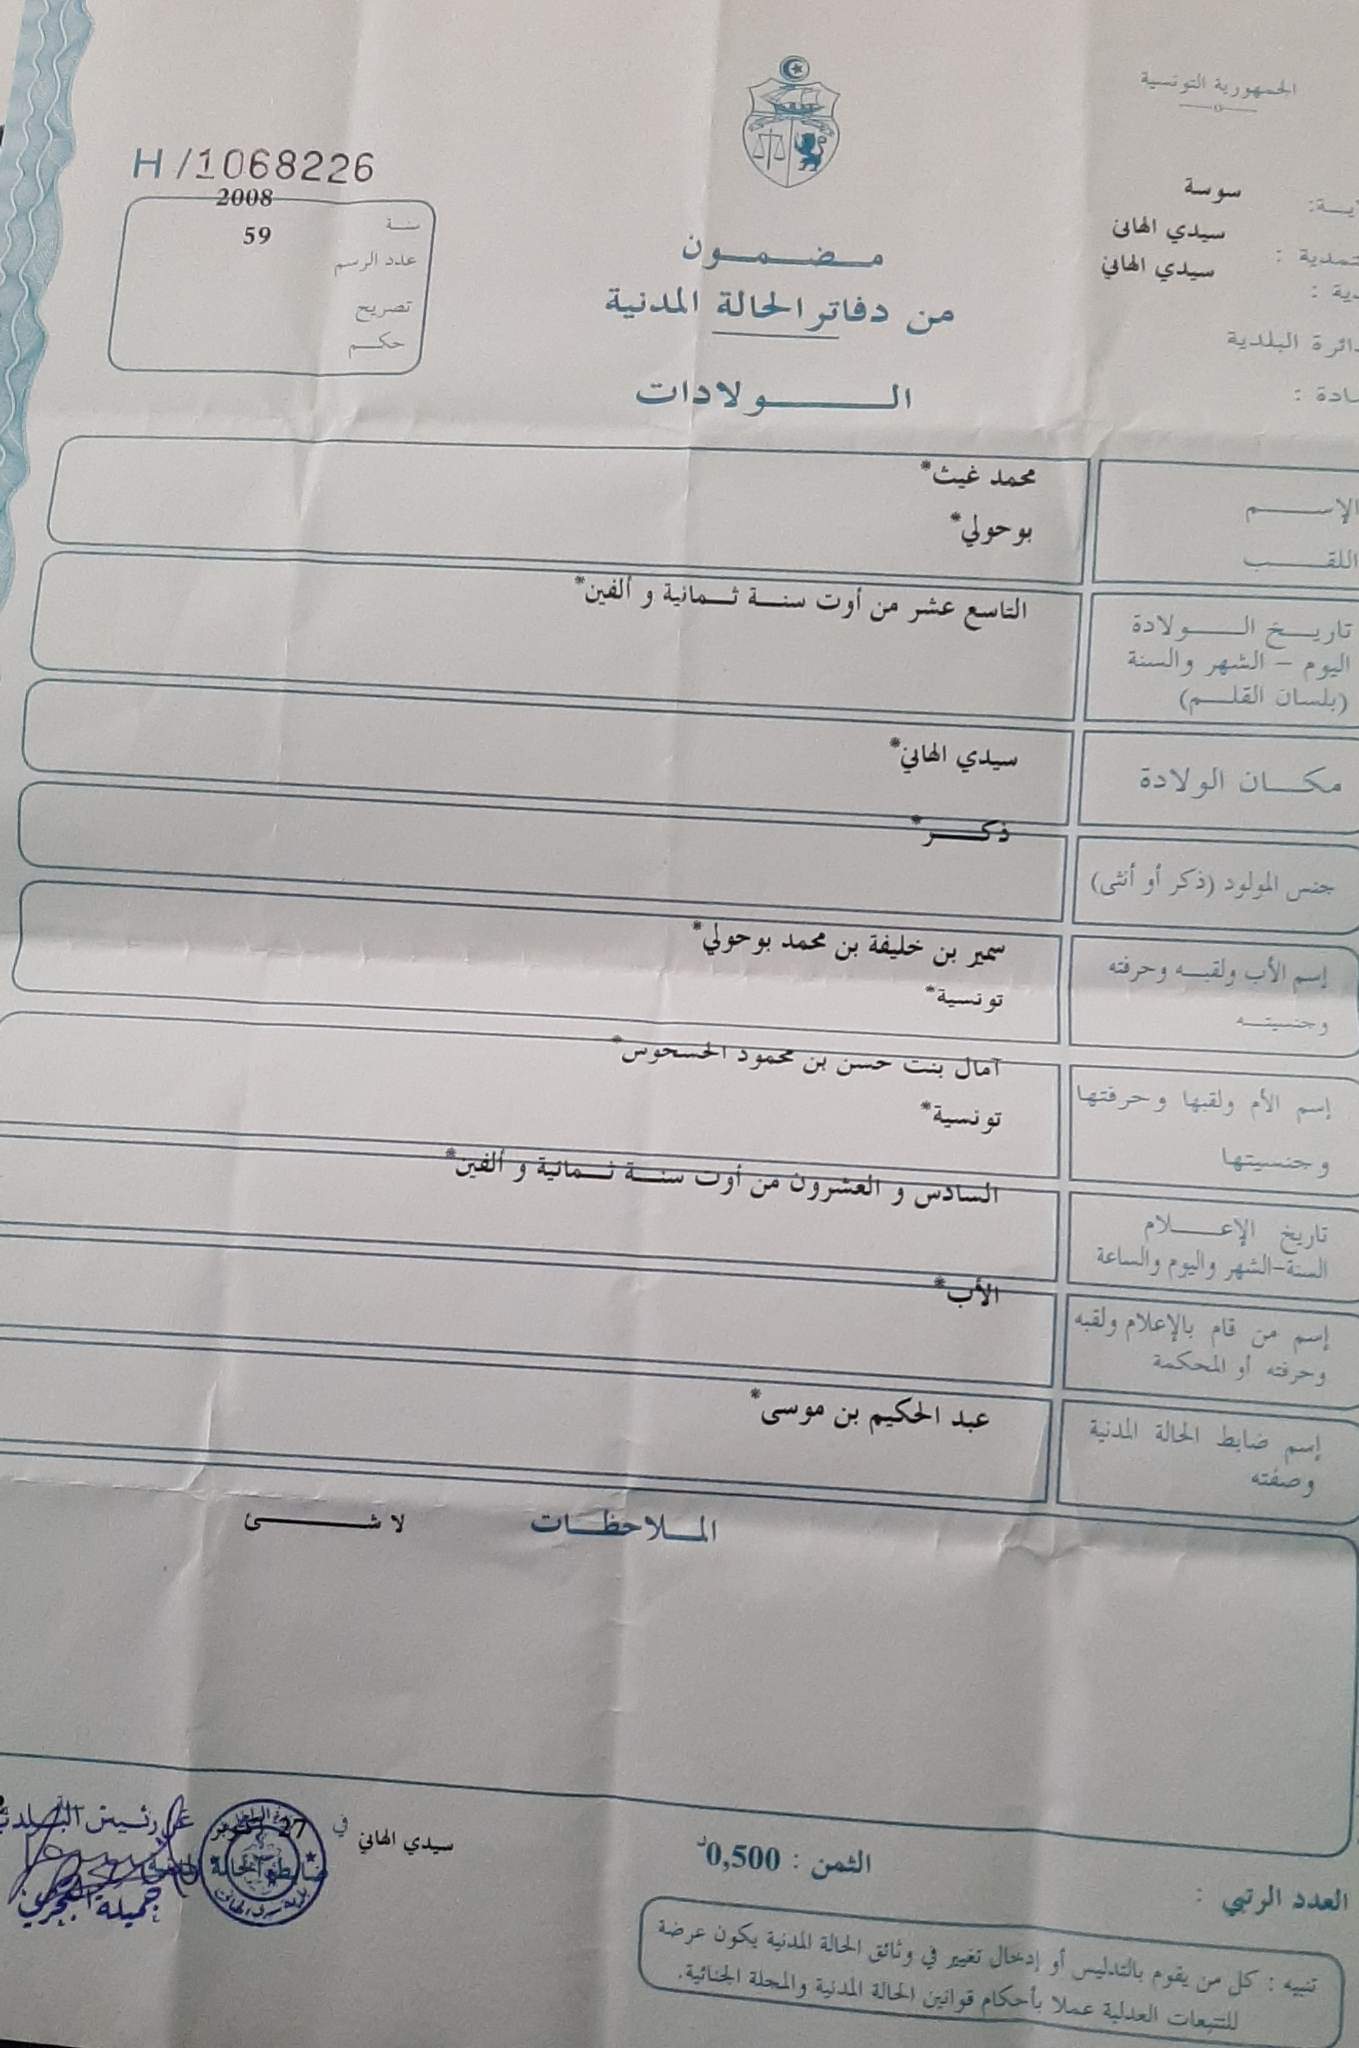 الجمهورية التونسية
H/1068226
سنة 2008
عدد الرسم 59
تصريح
حكـــم
سوسة
سيدي الهاني
سيدي الهاني
دائرة البلدية
مـــضـــمـــون
من دفاتر الحالة المدنية
الـــــولادات
الإســـــم محمد غيث*
اللقـــــب بوحولي*
تاريـــخ الـــــولادة التاسع عشر من أوت سنـــة ثـــمانية و ألفين*
اليوم – الشهر والسنة
(بلسان القلـــم)
مكـــان الولادة سيدي الهاني*
جنس المولود (ذكر أو أنثى) ذكـــر*
إسم الأب ولقبـــه وحرفته سمير بن خليفة بن محمد بوحولي*
وجنسيتـــه تونسية*
إسم الأم ولقبها وحرفتها آمال بنت حسن بن محمود الحسحوس*
وجنسيتها تونسية*
تاريخ الإعـــلام السادس و العشرون من أوت سنـــة ثـــمانية و ألفين*
السنة-الشهر واليوم والساعة
إسم من قام بالإعلام ولقبه الأب*
وحرفته أو المحكمة
إسم ضابط الحالة المدنية عبد الحكيم بن موسى*
وصفته
المـــلاحظـــات لا شـــئ
سيدي الهاني في 27 أكتوبر
عن رئيس البلدية
ضابط الحالة المدنية
جميلة
الثمن : 0,500د
العدد الرتبي :
تنبيه : كل من يقوم بالتدليس أو إدخال تغيير في وثائق الحالة المدنية يكون عرضة
للتتبعات العدلية عملا بأحكام قوانين الحالة المدنية والمجلة الجنائية.